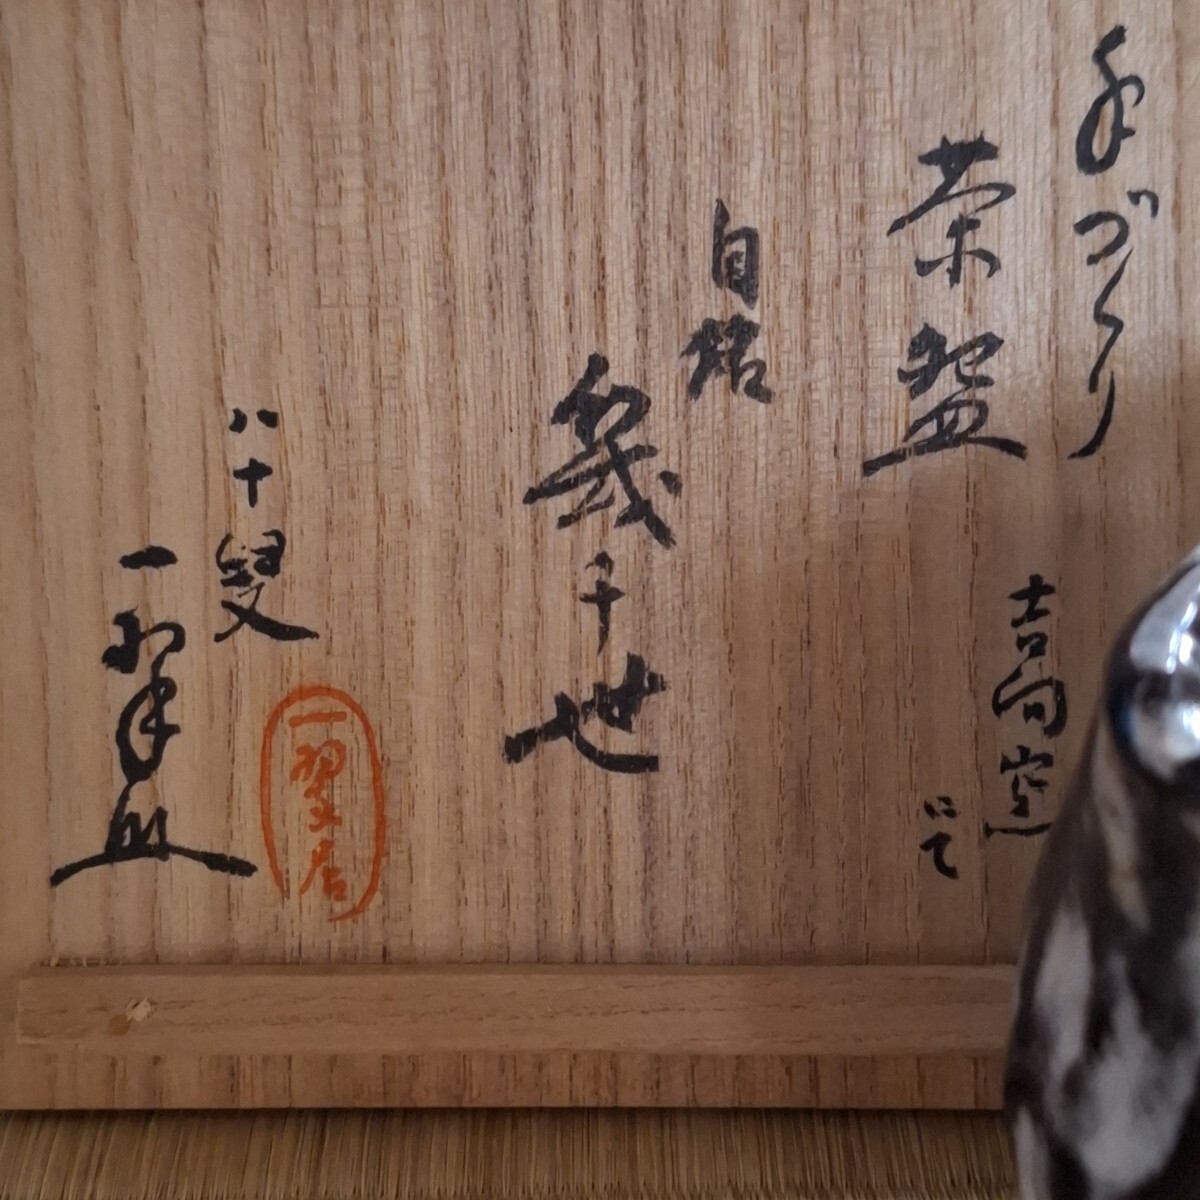 手づくり
茶盌
吉向窯
にて
自銘
幾千世
八十叟
一翠
一翠居